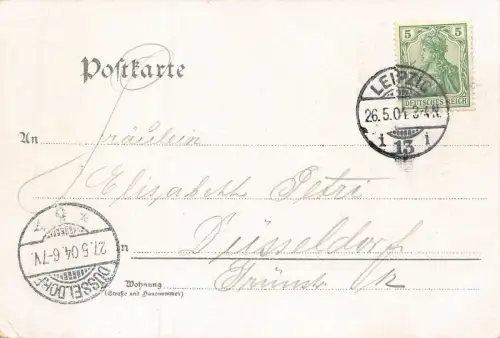 5 5
DEUTSCHES REICH
Postkarte
LEIPZIG
26.5.04. 3-4 N.
1 13 1
An Fräulein
Elisabeth Petri
in Düsseldorf
Wohnung
(Straße und Hausnummer)
DÜSSELDORF
27.5.04. 6-7 V.